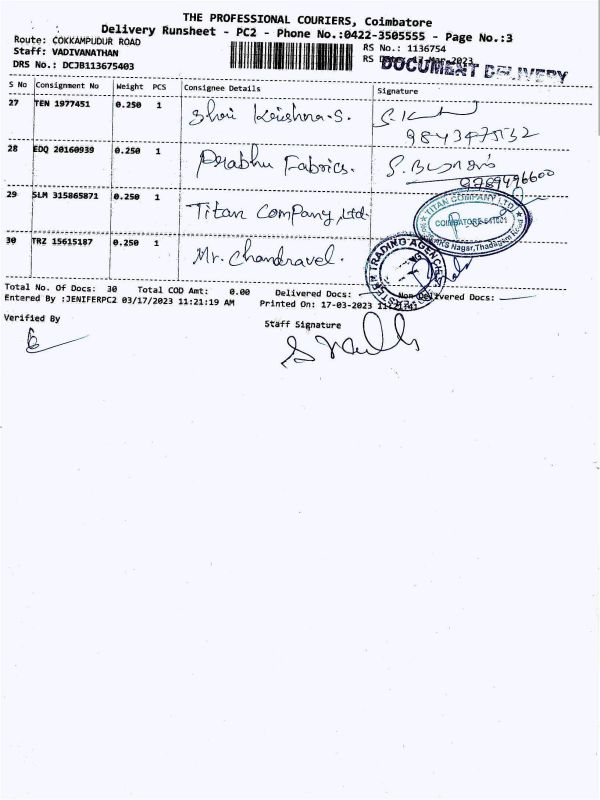 THE PROFESSIONAL COURIERS, Coimbatore
Delivery Runsheet - PC2 - Phone No.:0422-3505555 - Page No.:3
Route: COKKAMPUDUR ROAD
RS No.: 1136754
Staff: VADIVANATHAN
RS 17-Mar-2023
DOCUMENT DELIVERY
DRS No.: DCJB113675403
S No Consignment No Weight PCS Consignee Details Signature
27 TEN 1977451 0.250 1 Shri Krishna.S.
9843475132
28 EDQ 20160939 0.250 1 Prabhu Fabrics.
9789496600
29 SLM 315865871 0.250 1 Titan Company, Ltd.
TITAN COMPANY LTD.
COIMBATORE-641001
Nagar, Thadagam Road
30 TRZ 15615187 0.250 1 Mr. Chandravel.
TRADING AGENCIES
Total No. Of Docs: 30 Total COD Amt: 0.00 Delivered Docs: Non Delivered Docs:
Entered By :JENIFERPC2 03/17/2023 11:21:19 AM Printed On: 17-03-2023
Verified By
Staff Signature